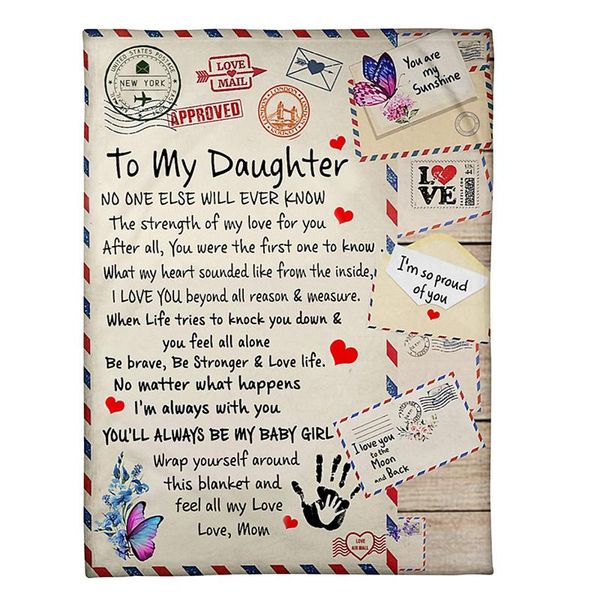 UNITED STATES POSTAGE
NEW YORK
LOVE
MAIL
APPROVED
LONDON
LONDON
You are
my
Sunshine
To My Daughter
NO ONE ELSE WILL EVER KNOW
The strength of my love for you
After all, You were the first one to know .
What my heart sounded like from the inside,
I LOVE YOU beyond all reason & measure.
When Life tries to knock you down &
you feel all alone
Be brave, Be Stronger & Love life.
No matter what happens
I'm always with you
YOU'LL ALWAYS BE MY BABY GIRL
Wrap yourself around
this blanket and
feel all my Love
Love, Mom
LOVE
44
I'm so proud
of you
I love you
to the
Moon
and Back
LOVE
AIR MAIL